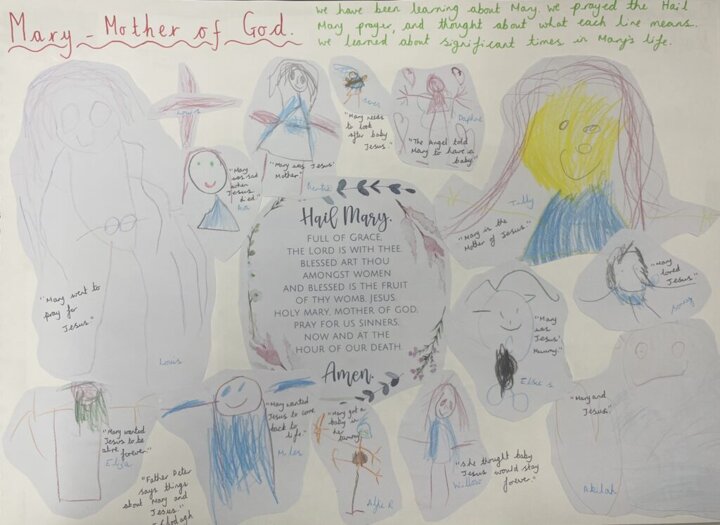 Mary - Mother of God.
we have been learning about Mary. We prayed the Hail
Mary prayer, and thought about what each line means.
We learned about significant times in Mary's life.
"Mary went to
pray for
Jesus"
Louis
"Mary
was sad
when
Jesus
died."
"Mary was Jesus'
Mother."
"Mary needs
to look
after baby
Jesus."
"The Angel told
Mary to have a
baby"
Daphne
Tully
"Mary is the
Mother of Jesus"
"Mary
loved
Jesus"
Hail Mary,
FULL OF GRACE,
THE LORD IS WITH THEE.
BLESSED ART THOU
AMONGST WOMEN
AND BLESSED IS THE FRUIT
OF THY WOMB, JESUS.
HOLY MARY, MOTHER OF GOD,
PRAY FOR US SINNERS,
NOW AND AT THE
HOUR OF OUR DEATH.
Amen.
"Mary
was
Jesus'
Mummy."
Elsie S
"Mary and
Jesus."
Akilah
"Mary wanted
Jesus to be
alive forever."
Eliza
"Father Peter
says things
about Mary and
Jesus."
Clodagh
"Mary wanted
Jesus to come
back to
life."
Miles
"Mary got a
baby in
her
tummy"
Alfie R
"she thought baby
Jesus would stay
forever."
Willow